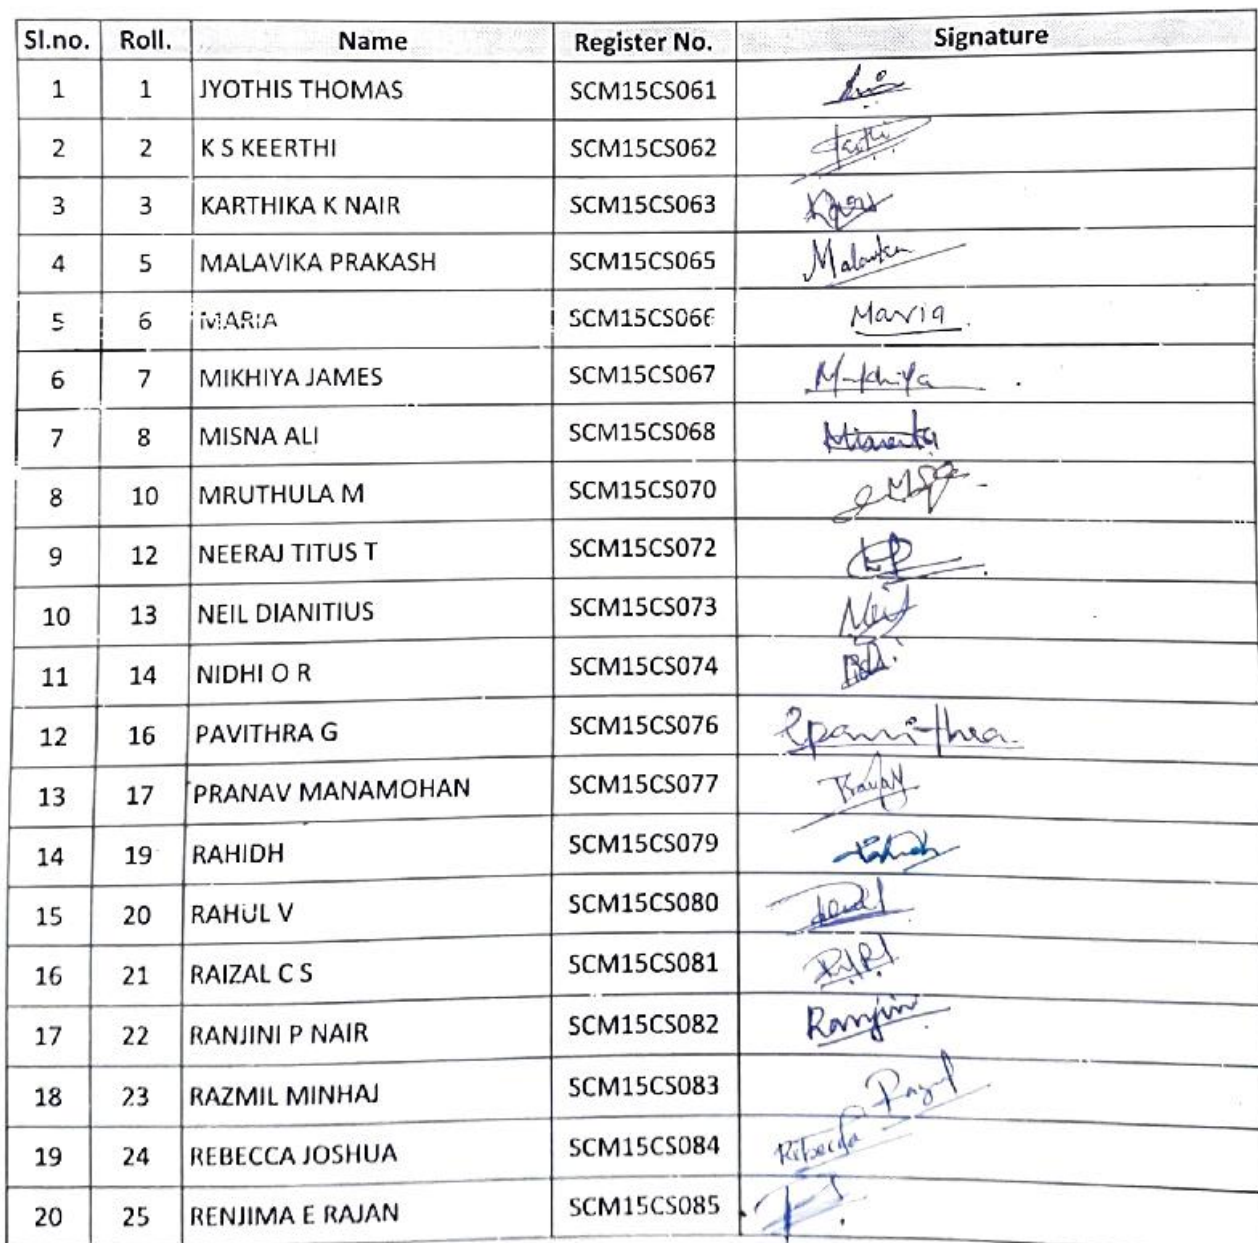 Sl.no. Roll. Name Register No. Signature
1 1 JYOTHIS THOMAS SCM15CS061
2 2 K S KEERTHI SCM15CS062
3 3 KARTHIKA K NAIR SCM15CS063
4 5 MALAVIKA PRAKASH SCM15CS065 Malavika
5 6 MARIA SCM15CS066 Maria
6 7 MIKHIYA JAMES SCM15CS067 Mikhiya
7 8 MISNA ALI SCM15CS068
8 10 MRUTHULA M SCM15CS070
9 12 NEERAJ TITUS T SCM15CS072
10 13 NEIL DIANITIUS SCM15CS073 Neil
11 14 NIDHI O R SCM15CS074
12 16 PAVITHRA G SCM15CS076
13 17 PRANAV MANAMOHAN SCM15CS077 Pranav
14 19 RAHIDH SCM15CS079
15 20 RAHUL V SCM15CS080
16 21 RAIZAL C S SCM15CS081
17 22 RANJINI P NAIR SCM15CS082 Ranjini
18 23 RAZMIL MINHAJ SCM15CS083
19 24 REBECCA JOSHUA SCM15CS084
20 25 RENJIMA E RAJAN SCM15CS085